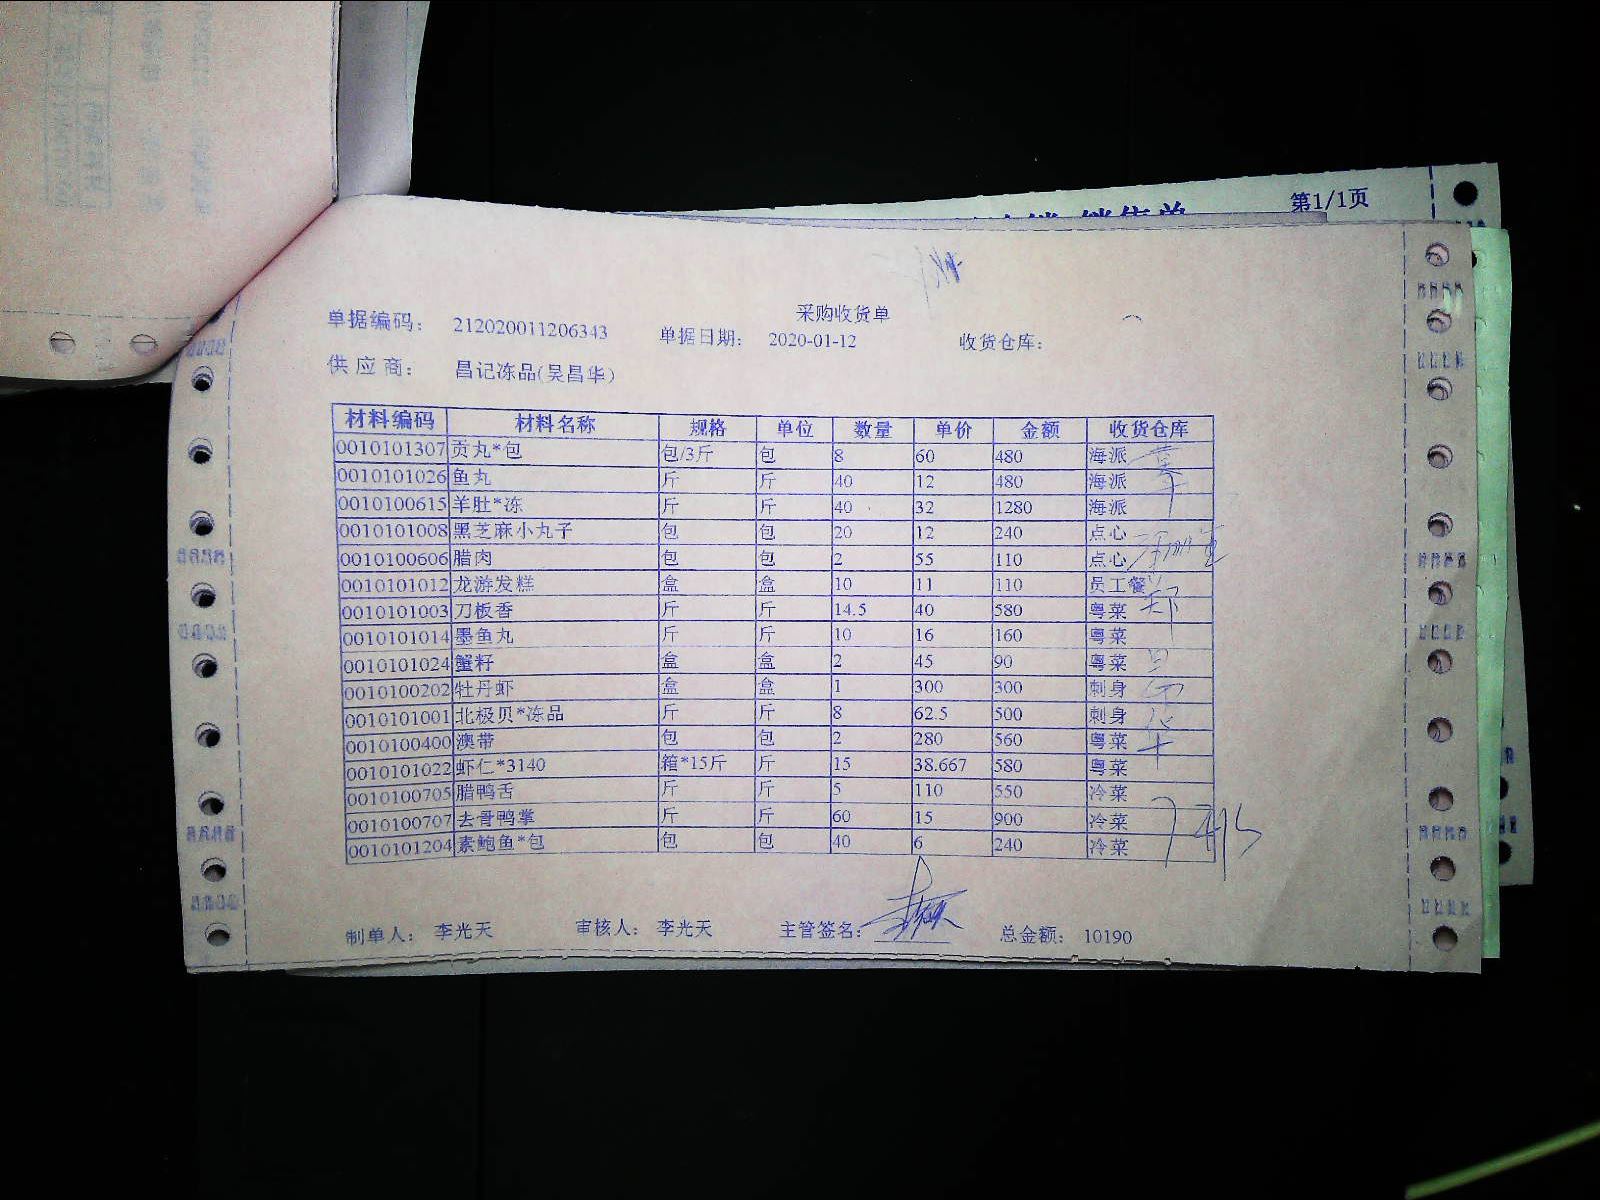 第1/1页
采购收货单
单据编码： 212020011206343 单据日期： 2020-01-12 收货仓库：
供应商： 昌记冻品(吴昌华)
材料编码 材料名称 规格 单位 数量 单价 金额 收货仓库
0010101307 贡丸*包 包/3斤 包 8 60 480 海派
0010101026 鱼丸 斤 斤 40 12 480 海派
0010100615 羊肚*冻 斤 斤 40 32 1280 海派
0010101008 黑芝麻小丸子 包 包 20 12 240 点心
0010100606 腊肉 包 包 2 55 110 点心
0010101012 龙游发糕 盒 盒 10 11 110 员工餐
0010101003 刀板香 斤 斤 14.5 40 580 粤菜
0010101014 墨鱼丸 斤 斤 10 16 160 粤菜
0010101024 蟹籽 盒 盒 2 45 90 粤菜
0010100202 牡丹虾 盒 盒 1 300 300 刺身
0010101001 北极贝*冻品 斤 斤 8 62.5 500 刺身
0010100400 澳带 包 包 2 280 560 粤菜
0010101022 虾仁*3140 箱*15斤 斤 15 38.667 580 粤菜
0010100705 腊鸭舌 斤 斤 5 110 550 冷菜
0010100707 去骨鸭掌 斤 斤 60 15 900 冷菜
0010101204 素鲍鱼*包 包 包 40 6 240 冷菜
制单人： 李光天 审核人： 李光天 主管签名： 总金额： 10190